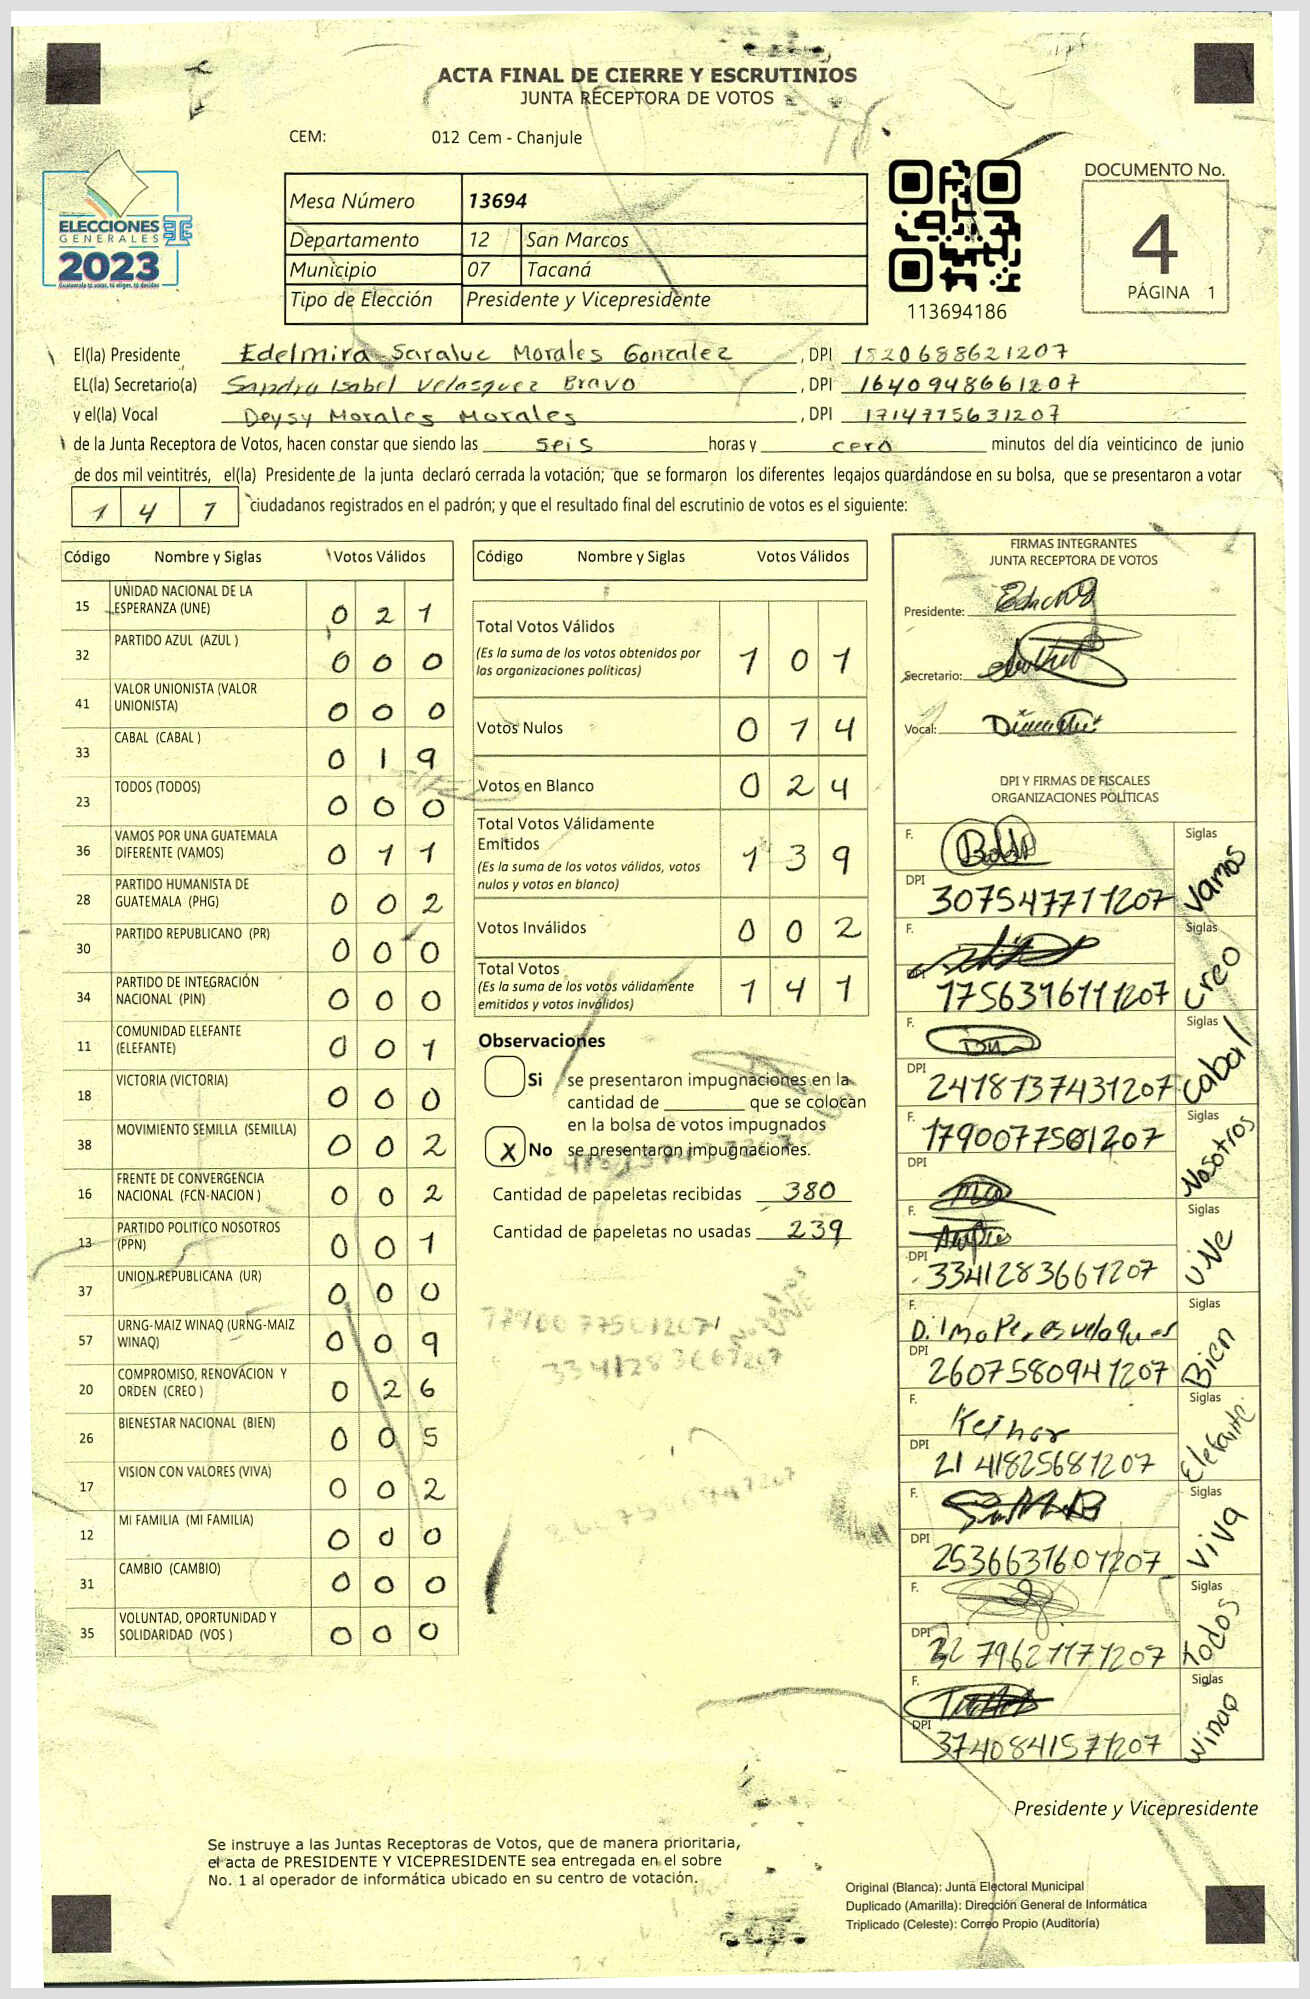 ACTA FINAL DE CIERRE Y ESCRUTINIOS
JUNTA RECEPTORA DE VOTOS
CEM: 012 Cem - Chanjule
ELECCIONES
GENERALES
2023
Guatemala tú votas, tú eliges, tú decides
Mesa Número 13694
Departamento 12 San Marcos
Municipio 07 Tacaná
Tipo de Elección Presidente y Vicepresidente
113694186
DOCUMENTO No.
4
PÁGINA 1
El(la) Presidente Edelmira Saraluc Morales Gonzalez, DPI 1820688621207
EL(la) Secretario(a) Sandra Isabel Velasquez Bravo, DPI 1640948661207
y el(la) Vocal Deysy Morales Morales, DPI 1714775631207
de la Junta Receptora de Votos, hacen constar que siendo las seis horas y cero minutos del día veinticinco de junio
de dos mil veintitrés, el(la) Presidente de la junta declaró cerrada la votación; que se formaron los diferentes legajos guardándose en su bolsa, que se presentaron a votar
1 4 7 ciudadanos registrados en el padrón; y que el resultado final del escrutinio de votos es el siguiente:
Código Nombre y Siglas Votos Válidos
15 UNIDAD NACIONAL DE LA ESPERANZA (UNE) 0 2 1
32 PARTIDO AZUL (AZUL ) 0 0 0
41 VALOR UNIONISTA (VALOR UNIONISTA) 0 0 0
33 CABAL (CABAL ) 0 1 9
23 TODOS (TODOS) 0 0 0
36 VAMOS POR UNA GUATEMALA DIFERENTE (VAMOS) 0 1 1
28 PARTIDO HUMANISTA DE GUATEMALA (PHG) 0 0 2
30 PARTIDO REPUBLICANO (PR) 0 0 0
34 PARTIDO DE INTEGRACIÓN NACIONAL (PIN) 0 0 0
11 COMUNIDAD ELEFANTE (ELEFANTE) 0 0 1
18 VICTORIA (VICTORIA) 0 0 0
38 MOVIMIENTO SEMILLA (SEMILLA) 0 0 2
16 FRENTE DE CONVERGENCIA NACIONAL (FCN-NACION ) 0 0 2
13 PARTIDO POLITICO NOSOTROS (PPN) 0 0 1
37 UNION REPUBLICANA (UR) 0 0 0
57 URNG-MAIZ WINAQ (URNG-MAIZ WINAQ) 0 0 9
20 COMPROMISO, RENOVACION Y ORDEN (CREO ) 0 2 6
26 BIENESTAR NACIONAL (BIEN) 0 0 5
17 VISION CON VALORES (VIVA) 0 0 2
12 MI FAMILIA (MI FAMILIA) 0 0 0
31 CAMBIO (CAMBIO) 0 0 0
35 VOLUNTAD, OPORTUNIDAD Y SOLIDARIDAD (VOS ) 0 0 0
Código Nombre y Siglas Votos Válidos
Total Votos Válidos 1 0 1
(Es la suma de los votos obtenidos por
las organizaciones políticas)
Votos Nulos 0 1 4
Votos en Blanco 0 2 4
Total Votos Válidamente
Emitidos 1 3 9
(Es la suma de los votos válidos, votos
nulos y votos en blanco)
Votos Inválidos 0 0 2
Total Votos 1 4 1
(Es la suma de los votos válidamente
emitidos y votos inválidos)
Observaciones
Si se presentaron impugnaciones en la
cantidad de ________ que se colocan
en la bolsa de votos impugnados
X No se presentaron impugnaciones.
Cantidad de papeletas recibidas 380
Cantidad de papeletas no usadas 239
FIRMAS INTEGRANTES
JUNTA RECEPTORA DE VOTOS
Presidente:
Secretario:
Vocal:
DPI Y FIRMAS DE FISCALES
ORGANIZACIONES POLÍTICAS
F. Siglas Vamos
DPI 3075477111207
F. Siglas Creo
DPI 1756316111207
F. Siglas Cabal
DPI 2418137431207
F. 1790077501207 Siglas Nosotros
DPI
F. Siglas UNe
DPI 3341283661207
F. Siglas Bien
DPI 2607580941207
F. Siglas Elefante
DPI 2141825681207
F. Siglas Viva
DPI 2536631601207
F. Siglas todos
DPI 3279621171207
F. Siglas Winaq
DPI 3740841571207
Presidente y Vicepresidente
Se instruye a las Juntas Receptoras de Votos, que de manera prioritaria,
el acta de PRESIDENTE Y VICEPRESIDENTE sea entregada en el sobre
No. 1 al operador de informática ubicado en su centro de votación.
Original (Blanca): Junta Electoral Municipal
Duplicado (Amarilla): Dirección General de Informática
Triplicado (Celeste): Correo Propio (Auditoría)